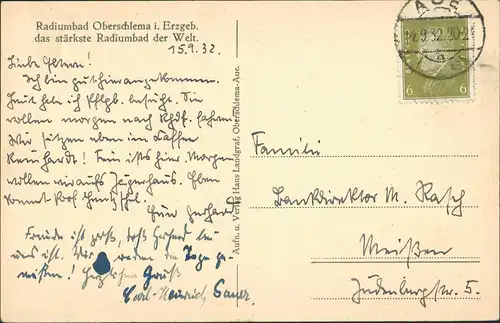 Radiumbad Oberschlema i. Erzgeb.
das stärkste Radiumbad der Welt.
15.9.32.
Liebe Eltern!
Ich bin gut hier angekommen.
Heut hab ich besucht. Sie
wollen morgen nach fahren
Wir sitzen eben im Kaffee
Reinhardt! Fein ists hier. Morgen
wollen wir aufs Jägerhaus. Eben
kommt
Euer Gerhard
Freude ist groß, daß Gerhard bei
uns ist. Wir die Tage ge-
nießen! Herzlichen Gruß
Carl-Heinrich Sauer.
Aufn. u. Verlag Hans Landgraf, Oberschlema-Aue.
AUE
14.9.32.20-2
6 6
Familie
Bankdirektor M. Rasch
Meißen
Judenburgstr. 5.